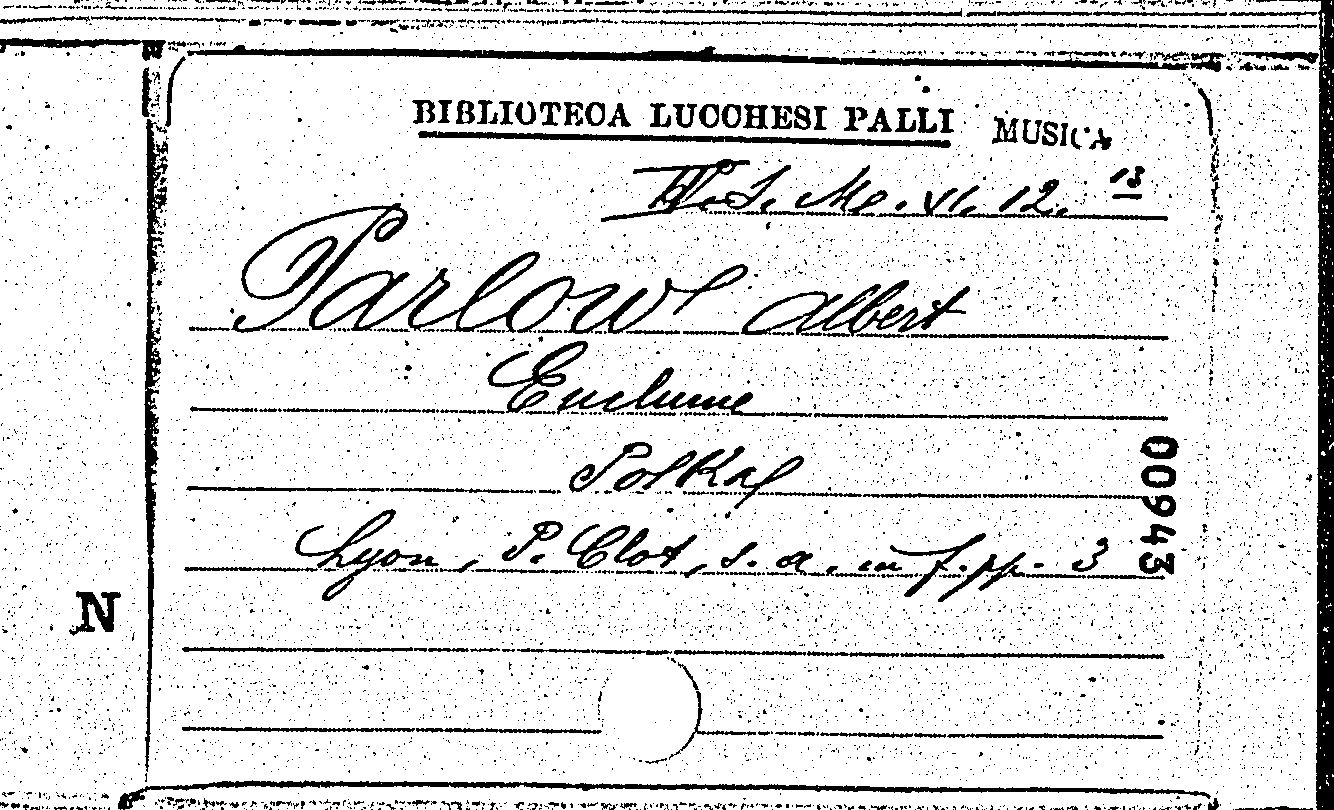 BIBLIOTECA LUCCHESI PALLI MUSICA
S. Mo. VI. 12. 13
Parlow Albert
Enclume
Polka
Lyon, P. Clot, s. a. in f. pp. 3
00943
N